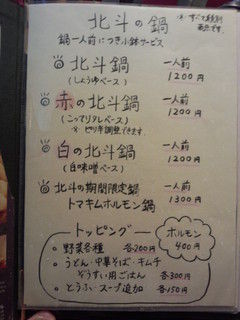 北斗の鍋
※すべて税別
商品です
鍋一人前につき小鉢サービス
北斗鍋 一人前
(しょうゆベース) 1200円
赤の北斗鍋 一人前
(こってりタレベース) 1200円
※ピリ辛調整できます
白の北斗鍋 一人前
(白味噌ベース) 1200円
北斗の期間限定鍋 一人前
トマキムホルモン鍋 1300円
トッピング
・野菜各種 各200円
・うどん・中華そば・キムチ
ぞうすい用ごはん 各300円
・とうふ・スープ追加 各150円
ホルモン
400円